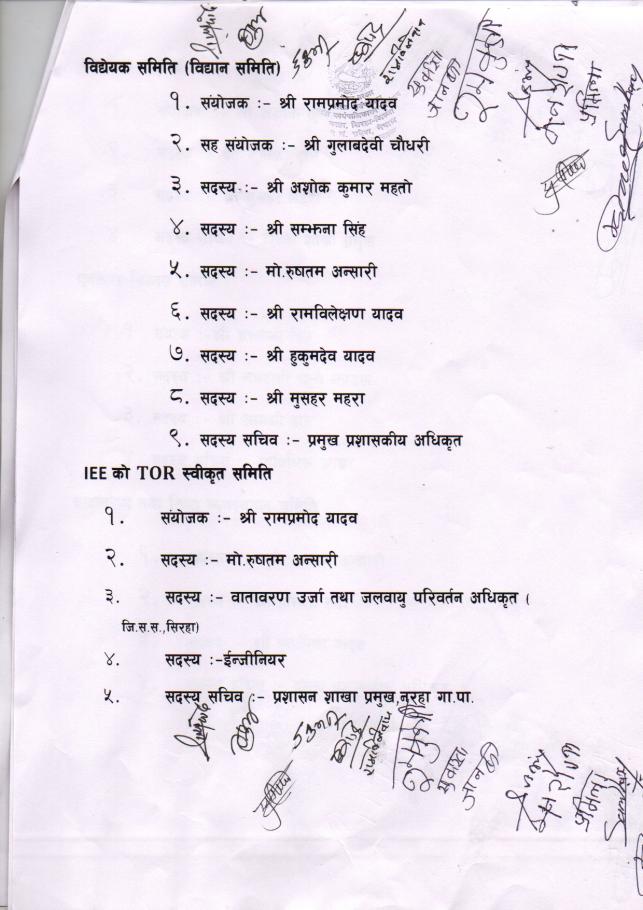 विद्येयक समिति (विद्यान समिति)
१. संयोजक :- श्री रामप्रमोद यादव
२. सह संयोजक :- श्री गुलाबदेवी चौधरी
३. सदस्य :- श्री अशोक कुमार महतो
४. सदस्य :- श्री सम्झना सिंह
५. सदस्य :- मो.रुषातम अन्सारी
६. सदस्य :- श्री रामविलेक्षण यादव
७. सदस्य :- श्री हुकुमदेव यादव
८. सदस्य :- श्री मुसहर महरा
९. सदस्य सचिव :- प्रमुख प्रशासकीय अधिकृत
IEE को TOR स्वीकृत समिति
१. संयोजक :- श्री रामप्रमोद यादव
२. सदस्य :- मो.रुषातम अन्सारी
३. सदस्य :- वातावरण उर्जा तथा जलवायु परिवर्तन अधिकृत (
जि.स.स.,सिरहा)
४. सदस्य :-ईन्जीनियर
५. सदस्य सचिव :- प्रशासन शाखा प्रमुख,नरहा गा.पा.